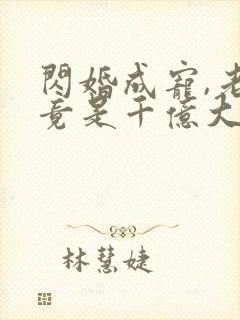 閃婚成寵,老
竟是千億大
林慧婕